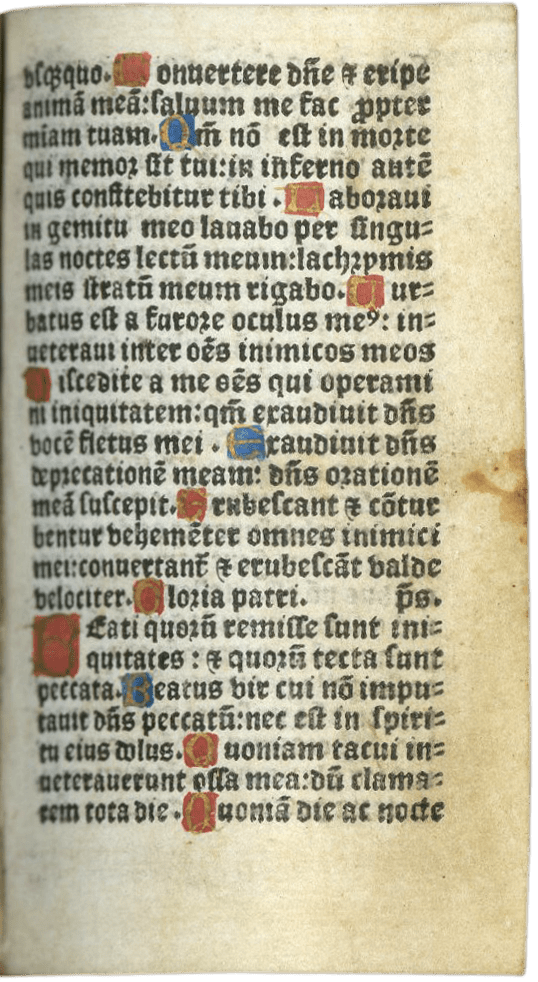 vsqzquo. Conuertere dñe ⁊ eripe
animā meā:saluum me fac ꝓpter
miam tuam. Qm̄ nō est in morte
qui memor sit tui:in inferno autē
quis confitebitur tibi . Laboraui
in gemitu meo lauabo per singu⸗
las noctes lectū meum:lachrymis
meis stratū meum rigabo. Tur⸗
batus est a furore oculus meꝰ: in⸗
ueteraui inter oēs inimicos meos
Discedite a me oēs qui operami
ni iniquitatem:qm̄ exaudiuit dñs
vocē fletus mei . Exaudiuit dñs
deprecationē meam: dñs orationē
meā suscepit. Erubescant ⁊ cōtur
bentur vehemēter omnes inimici
mei:conuertant̄ ⁊ erubescāt valde
velociter. Gloria patri. p̄s.
Beati quorū remisse sunt ini⸗
quitates : ⁊ quorū tecta sunt
peccata. Beatus vir cui nō impu⸗
tauit dñs peccatū:nec est in spiri⸗
tu eius dolus. Quoniam tacui in⸗
ueterauerunt ossa mea:dū clama⸗
rem tota die . Quoniā die ac nocte